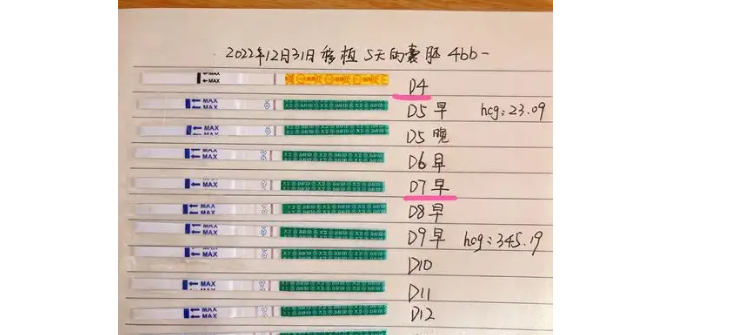 2022年12月31日移植 5天的囊胚 4bb-
MAX
D4
MAX
D5早 hcg:23.09
MAX
D5晚
MAX
D6早
MAX
D7早
MAX
D8早
MAX
D9早 hcg:345.19
MAX
D10
MAX
D11
MAX
D12